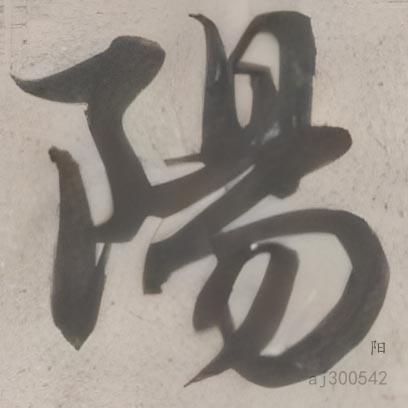 陽
阳
aj300542